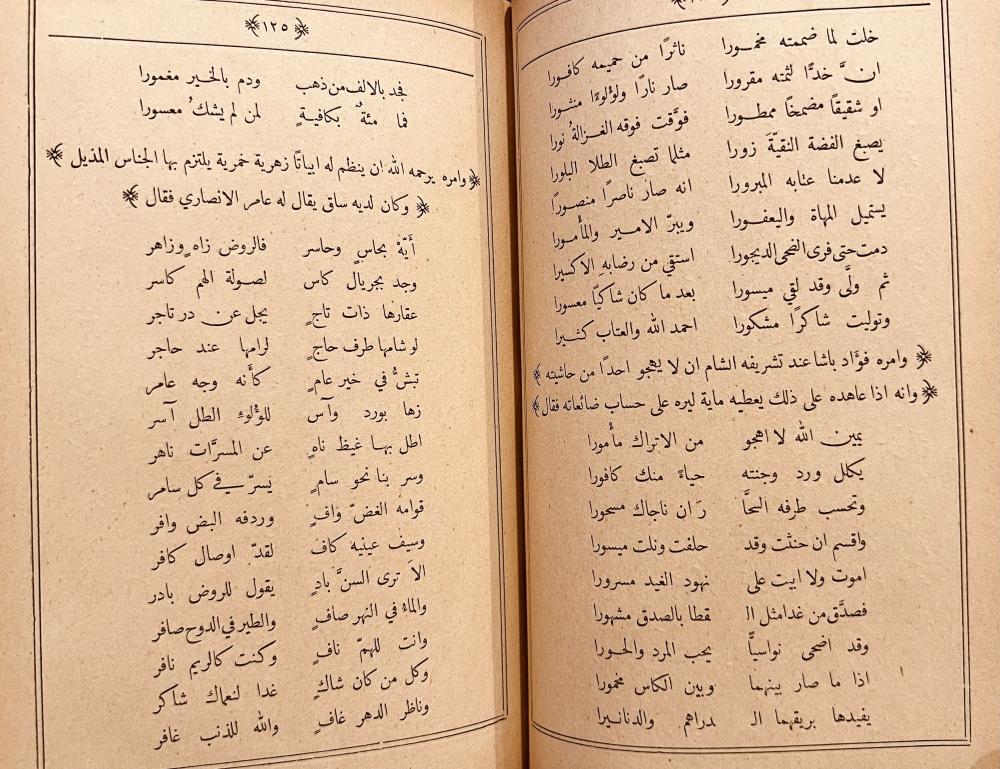 خلت لما ضممته مخمـورا ناثرًا من حميمه كافـورا
انَّ خدًّا لثمته مقرورا صار نارًا ولؤلوءًا منثـورا
او شقيقًا مضمخًا ممطـورا فوَّقت فوقه الغـزالةُ نورا
يصبغ الفضة النقيَّة زورا مثلما تصبغ الطلا البلورا
لا عدمنا عتابه المبرورا انه صار ناصرًا منصـورا
يستميل المهاة واليعفـورا ويبرّ الامـير والمأمـورا
دمت حتى فرى الضحى الديجورا استقي من رضابهِ الاكسيرا
ثم ولَّى وقد لقي ميسورا بعد ما كان شاكيًا معسورا
وتوليت شاكرًا مشكورا احمد الله والعتاب كثـيرا
وامره فؤاد باشا عند تشريفه الشام ان لا يهجو احدًا من حاشيته
وانه اذا عاهده على ذلك يعطيه ماية ليره على حساب ضائعاته فقال
يمين الله لا اهجو من الاتراك مأمورا
يكلل ورد وجنته حياءً منك كافورا
وتحسب طرفه السحَّا رَ ان ناجاك مسحورا
واقسم ان حنثت وقد حلفت ونلت ميسورا
اموت ولا ابيت على نهود الغيد مسرورا
فصدَّق من غدا مثل الـ قطا بالصدق مشهورا
وقد اضحى نواسيًّا يحب المرد والحـورا
اذا ما صار بينهما وبين الكاس مخمورا
يفيدها بريقهما الـ ـدراهم والدنانـيرا
١٢٥
فجد بالالف من ذهب ودم بالخـير مغمورا
فما مئةٌ بكافيةٍ لمن لم يشكُ معسورا
وامره يرحمه الله ان ينظم له ابياتًا زهرية خمرية يلتزم بها الجناس المذيل
وكان لديه ساق يقال له عامر الانصاري فقال
أَيّهْ بجاسٍ وحاسر فالروض زاهٍ وزاهر
وجد بجريال كاس لصـولة الهم كاسر
عقارها ذات تاجٍ يجل عن در تاجر
لو شامها طرف حاجٍ لرامها عند حاجر
تبشُّ في خير عامٍ كأنه وجه عامر
زها بورد وآس للؤلوءِ الطل آسر
اطل بهـا غيظ ناهٍ عن المسرَّات ناهر
وسر بنا نحو سامٍ يسرّ في كل سامر
قوامه الغضّ وافٍ وردفه البض وافر
وسيف عينيه كاف لقدّ اوصال كافر
الاَ ترى السنَّ بادٍ يقول للروض بادر
والماءُ في النهر صافٍ والطير في الدوح صافر
وانت للهمّ نافٍ وكنت كالريم نافر
وكل من كان شاكٍ غدا لنعماك شاكر
وناظر الدهر غافٍ والله للذنب غافر